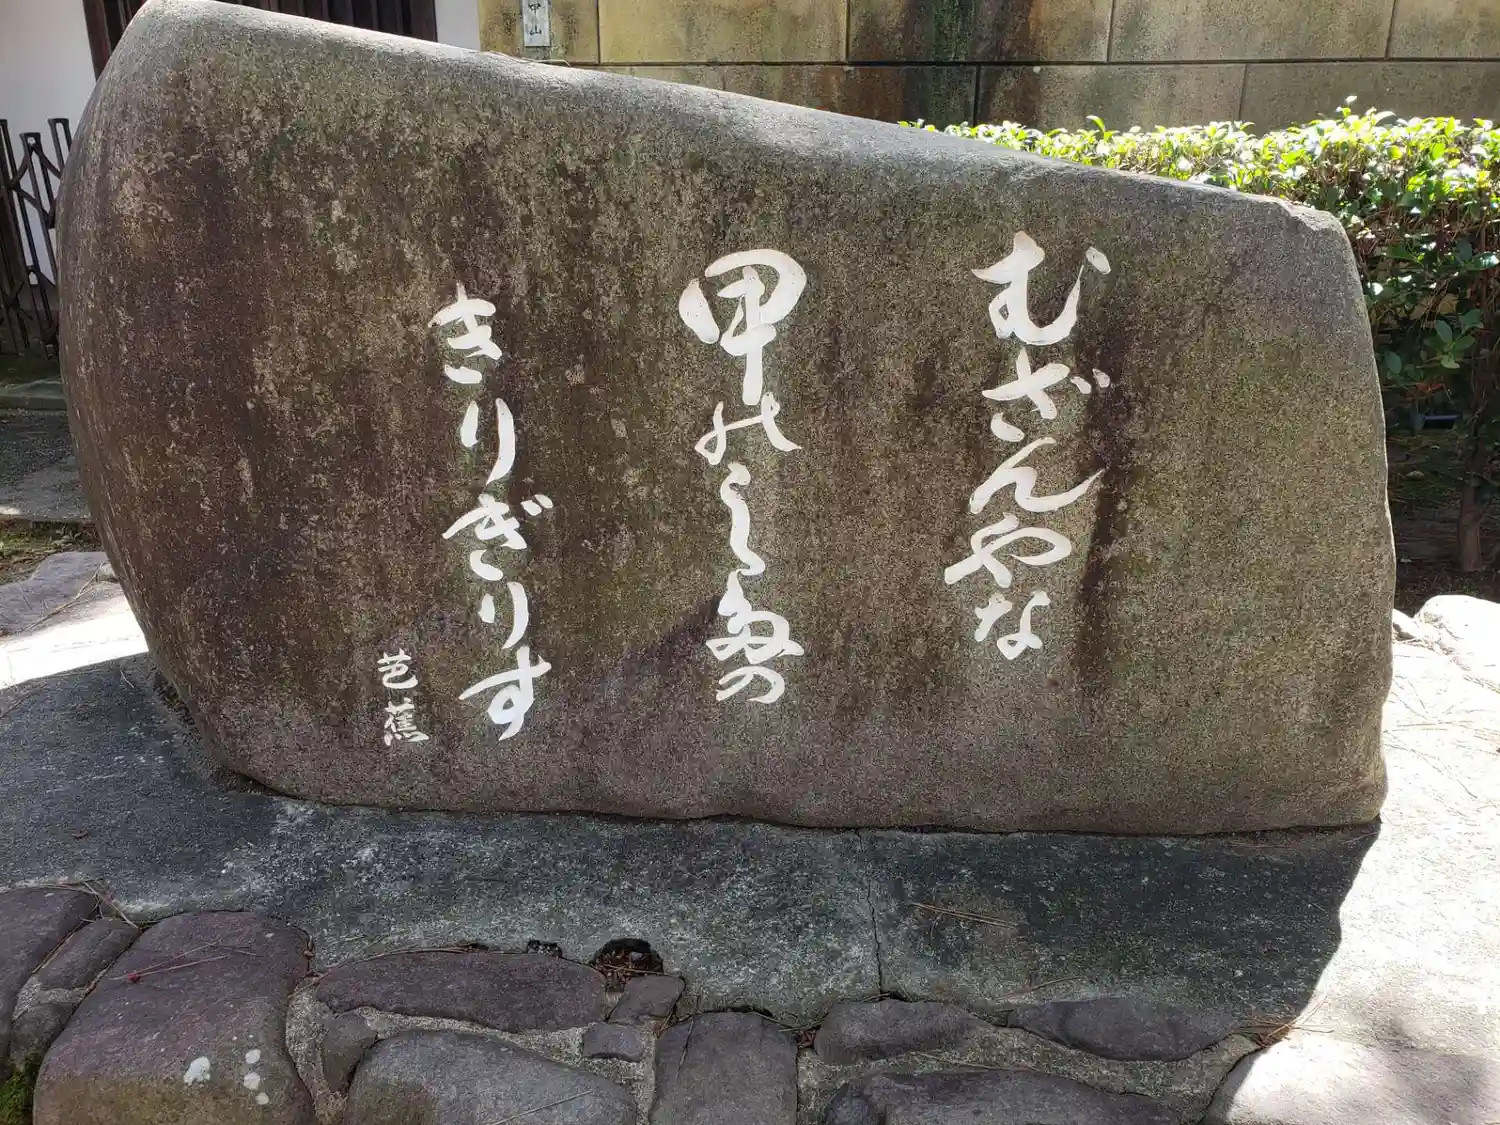 むざんやな
甲のしたの
きりぎりす
芭蕉